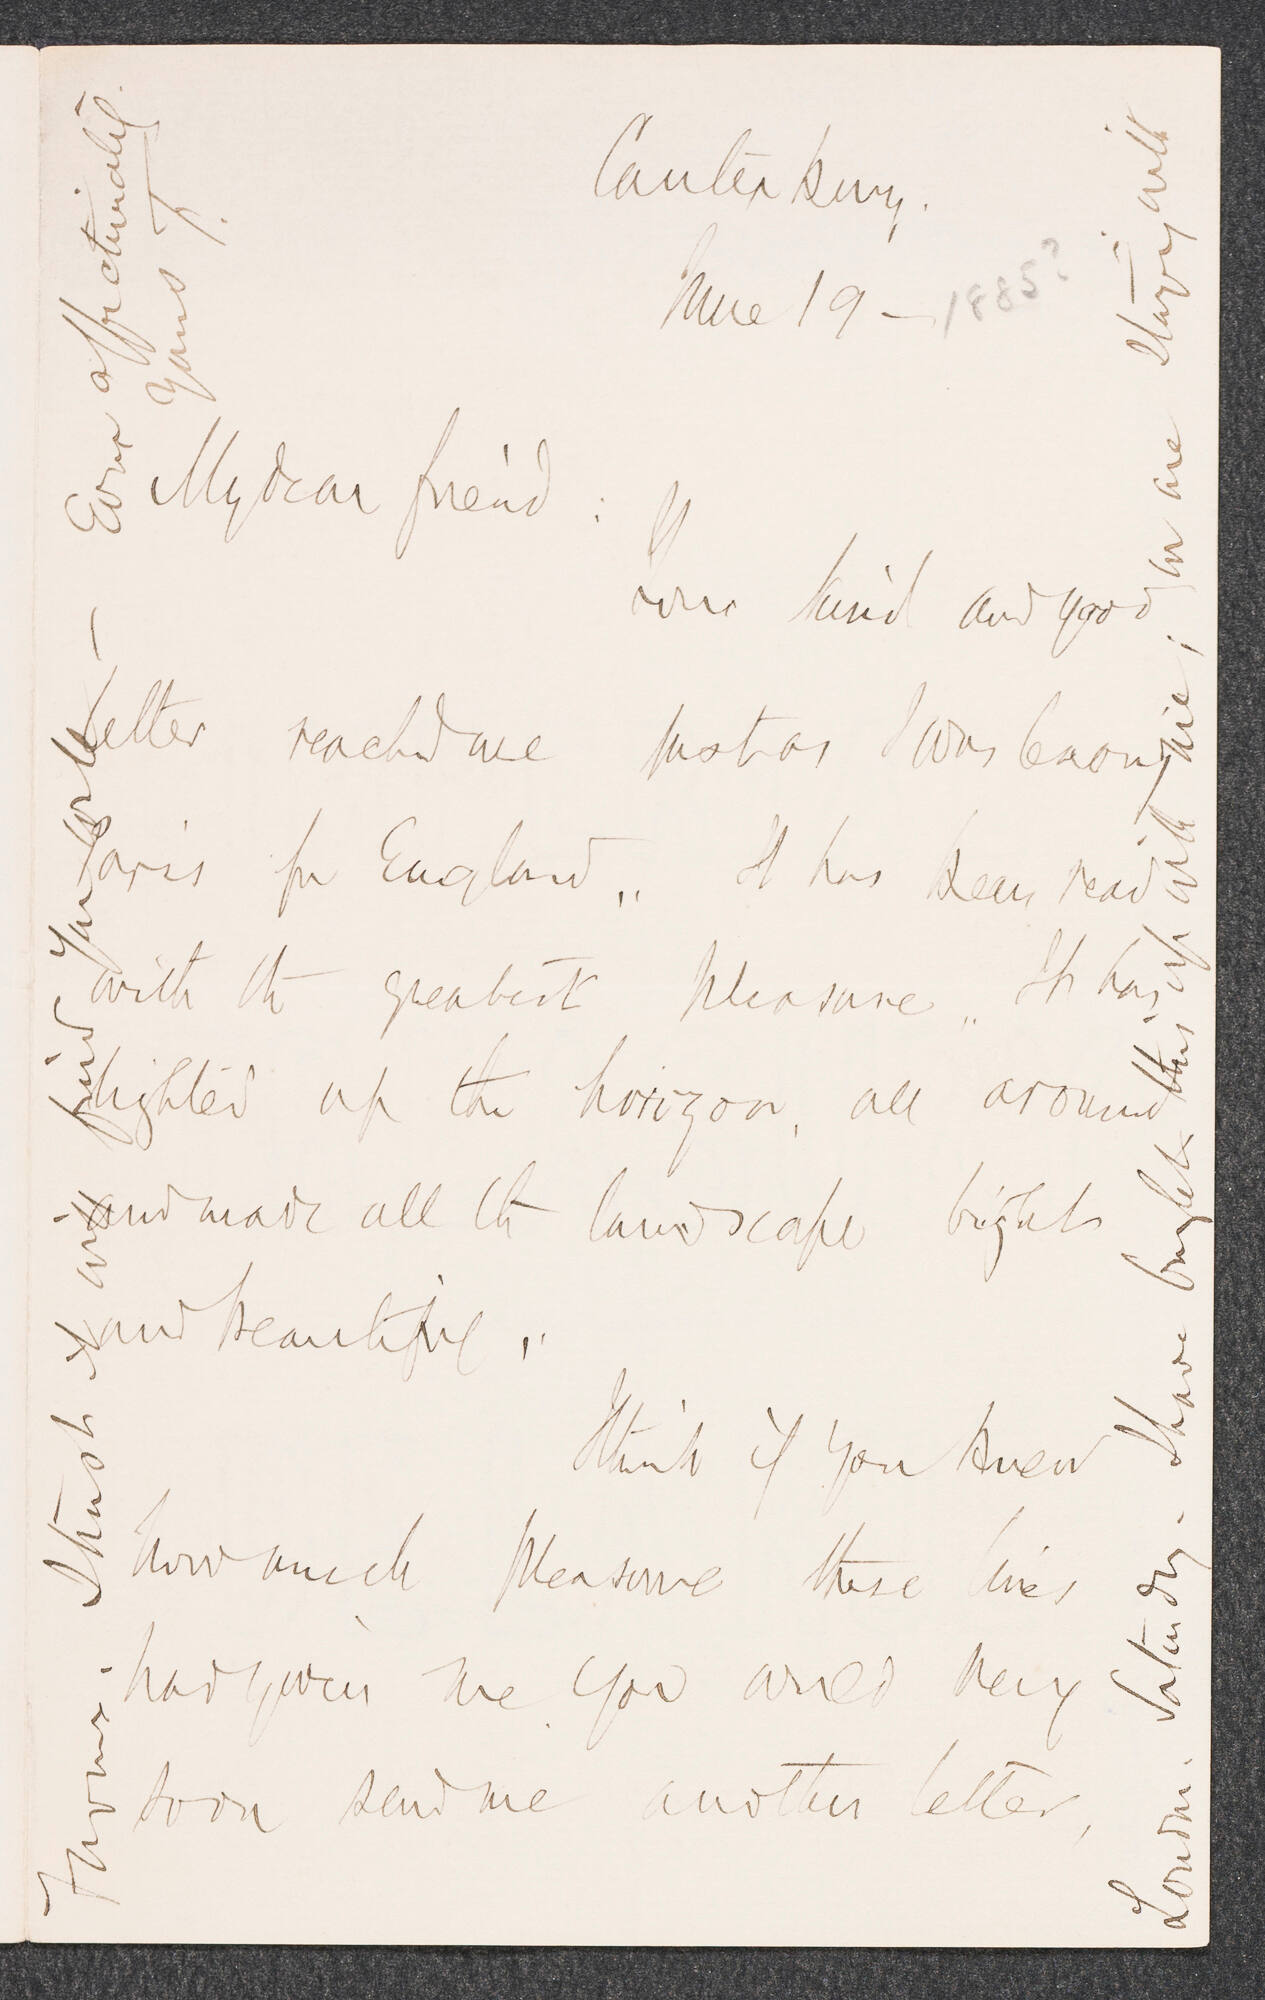 Canterbury.
June 19 – 1885?
My dear friend:
Your kind and good
letter reached me just as I was leaving
Paris for England.. It has been read
with the greatest pleasure.. It has
lighted up the horizon, all around
and made all the landscape bright
and beautiful..
I think if you knew
how much pleasure these lines
had given me you would very
soon send me another letter,
London. Saturday. I have brought this up with me; we are staying with
I trust it will find you well – Ever affectionately
Yours T.